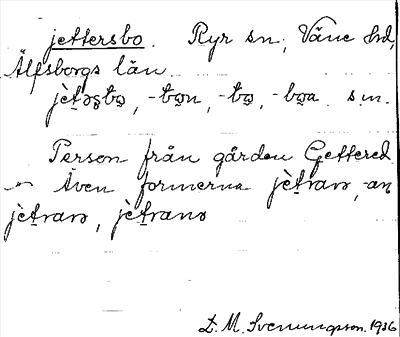 jettersbo. Ryr sn, Väne hd,
Älfsborgs län
jèt̠ əʂbɷ, -bɷn, -bɷ, -bɷa s.m.
Person från gården Gettered
–"– Även formerna jèt̠rarə, -an
jèt̠rarə, jèt̠ranə
D. M. Svenungsson. 1936